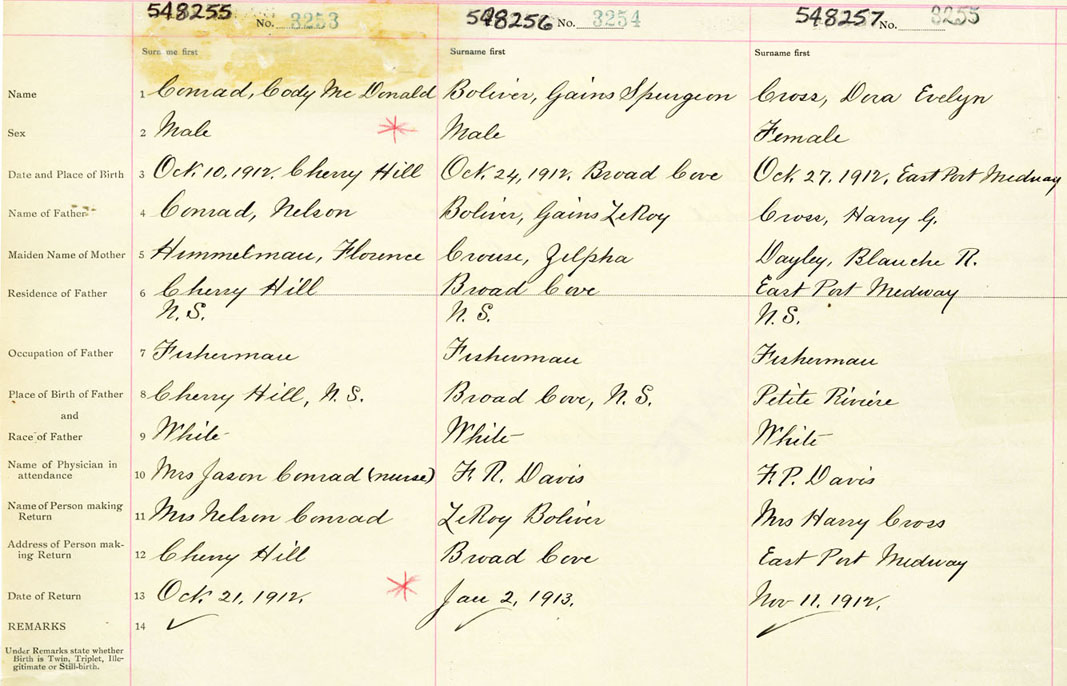 548255 No. 3253 548256 No. 3254 548257 No. 3255
Surname first Surname first Surname first
Name 1 Conrad, Cody Mc Donald Boliver, Gains Spurgeon Cross, Dora Evelyn
Sex 2 Male Male Female
Date and Place of Birth 3 Oct. 10, 1912. Cherry Hill Oct. 24, 1912. Broad Cove Oct. 27. 1912. East Port Medway
Name of Father 4 Conrad, Nelson Boliver, Gains LeRoy Cross, Harry G.
Maiden Name of Mother 5 Himmelman, Florence Crouse, Zelpha Dayley, Blanche R.
Residence of Father 6 Cherry Hill Broad Cove East Port Medway
N.S. N.S. N.S.
Occupation of Father 7 Fisherman Fisherman Fisherman
Place of Birth of Father 8 Cherry Hill, N.S. Broad Cove, N.S. Petite Riviere
and
Race of Father 9 White White White
Name of Physician in
attendance 10 Mrs Jason Conrad (nurse) F. R. Davis F. P. Davis
Name of Person making
Return 11 Mrs Nelson Conrad LeRoy Boliver Mrs Harry Cross
Address of Person mak-
ing Return 12 Cherry Hill Broad Cove East Port Medway
Date of Return 13 Oct. 21, 1912. Jan 2, 1913. Nov 11. 1912.
REMARKS 14
Under Remarks state whether
Birth is Twin, Triplet, Ille-
gitimate or Still-birth.